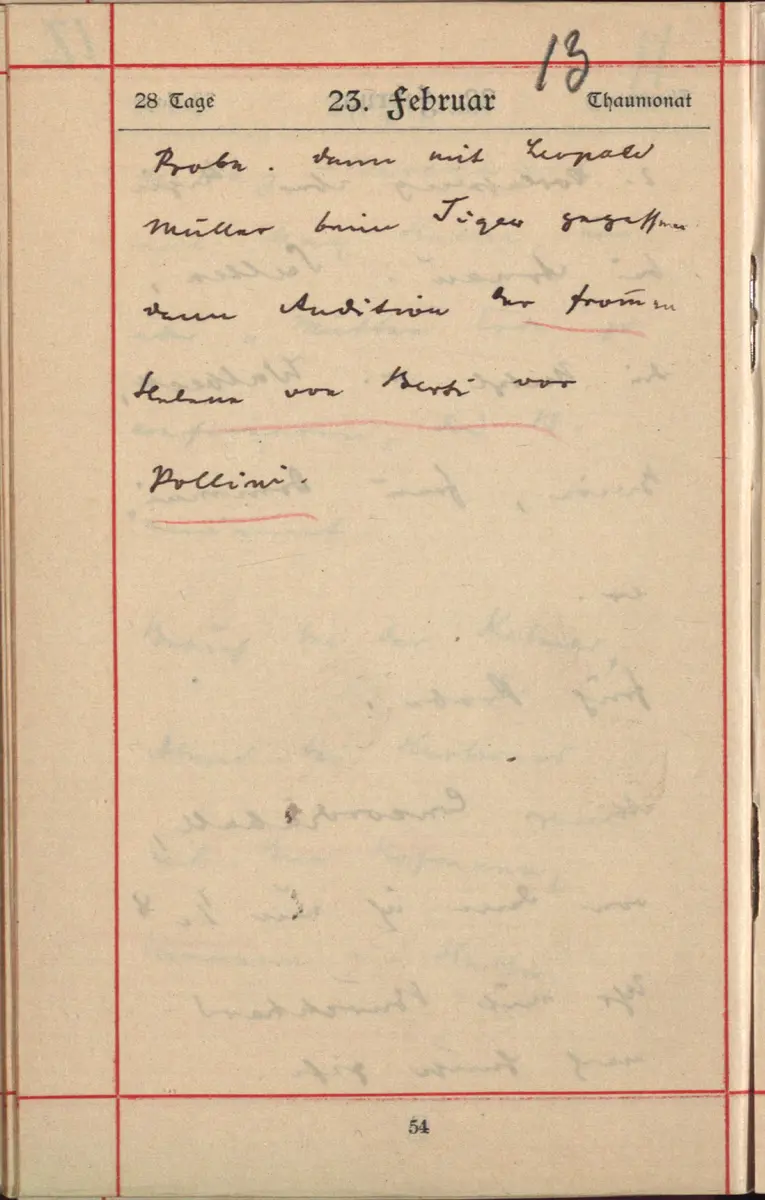 13
28 Tage 23. Februar Thaumonat
Probe. dann mit Leopold
Müller beim Tiger gegessen
dann Audition der from̄en
Helene von Berté vor
Pollini.
54